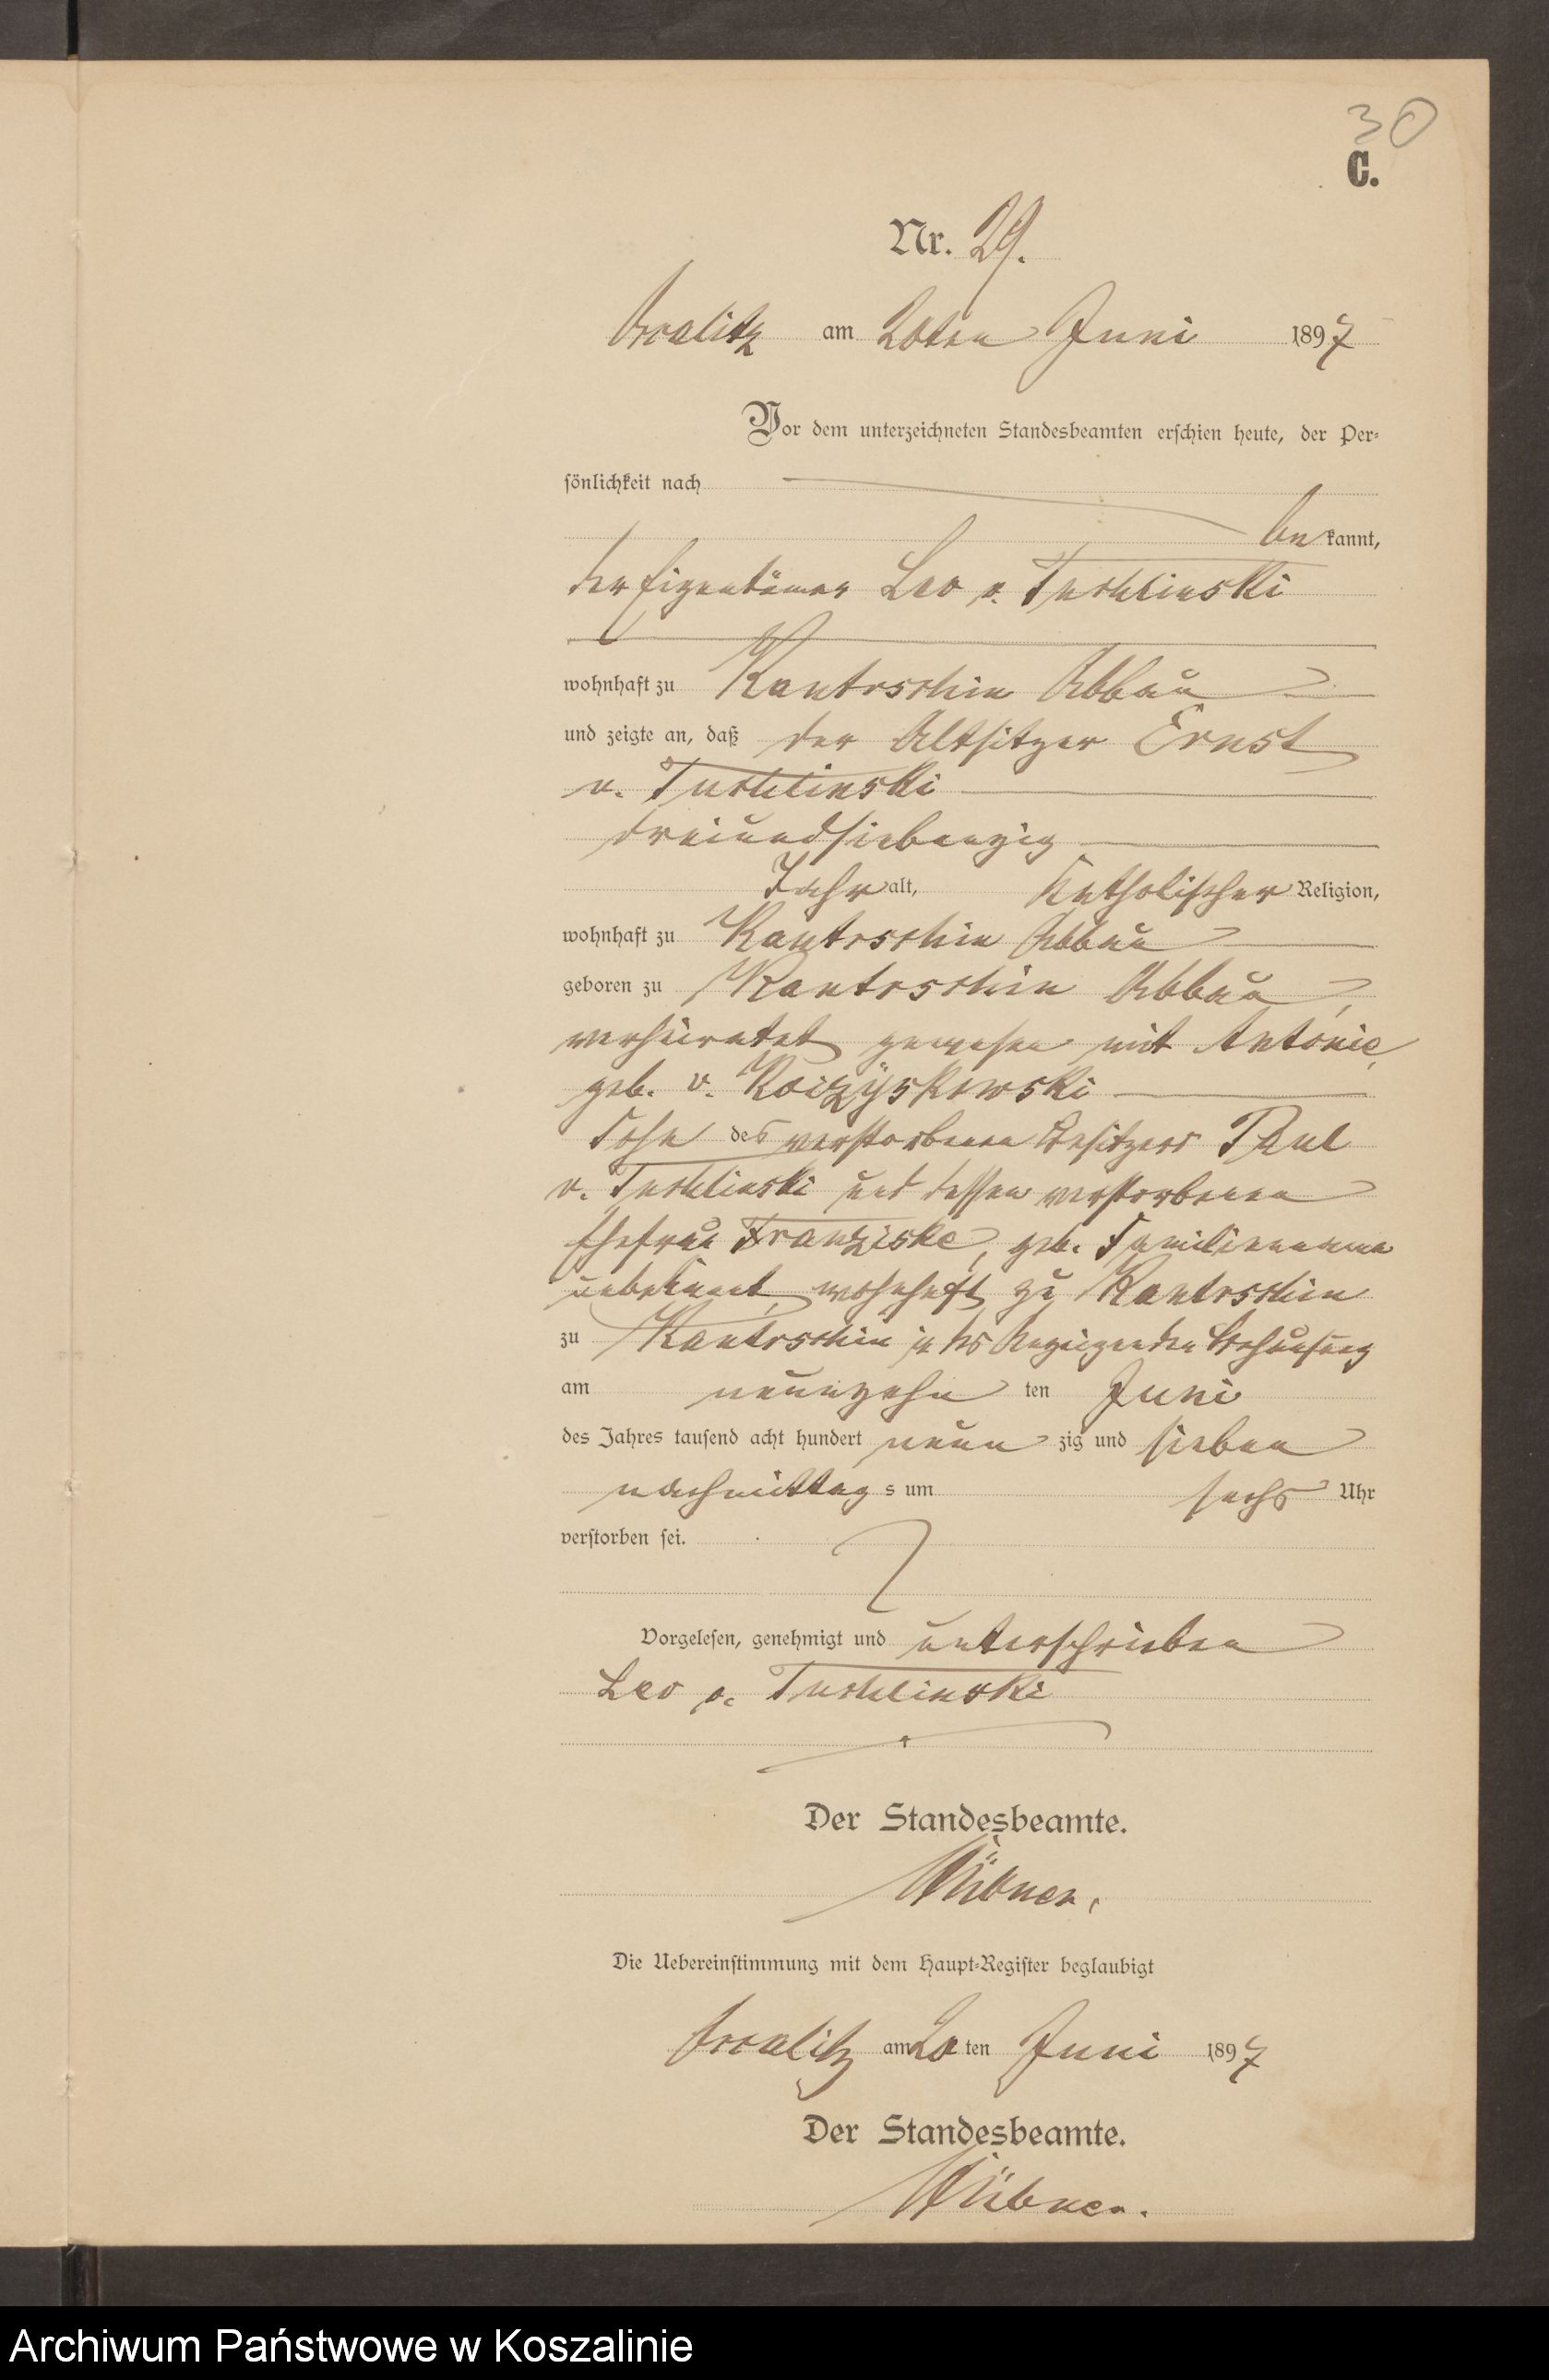 30
C.
Nr. 29.
am 20ten Juni 1897
Vor dem unterzeichneten Standesbeamten erschien heute, der Per-
sönlichkeit nach
be kannt,
der Eigentümer Leo v. Tuchlinski
wohnhaft zu Kantrschin Abbau
und zeigte an, daß der Altsitzer Ernst
v. Tuchlinski
dreiundsiebenzig
Jahr alt, katholischer Religion,
wohnhaft zu Kantrschin Abbau
geboren zu Kantrschin Abbau,
verheiratet gewesen mit Antonie,
geb. v.
Sohn des verstorbenen Besitzers Paul
v. Tuchlinski und dessen verstorbenen
Ehefrau Franziske, geb. Familienname
unbekannt, wohnhaft zu Kantrschin
zu Kantrschin in des Anzeigenden Behausung
am neunzehn ten Juni
des Jahres tausend acht hundert neun zig und sieben
nachmittag s um sechs Uhr
verstorben sei.
Vorgelesen, genehmigt und unterschrieben
Leo v. Tuchlinski
Der Standesbeamte.
Die Uebereinstimmung mit dem Haupt-Register beglaubigt
am 20 ten Juni 1897
Der Standesbeamte.
Archiwum Państwowe w Koszalinie